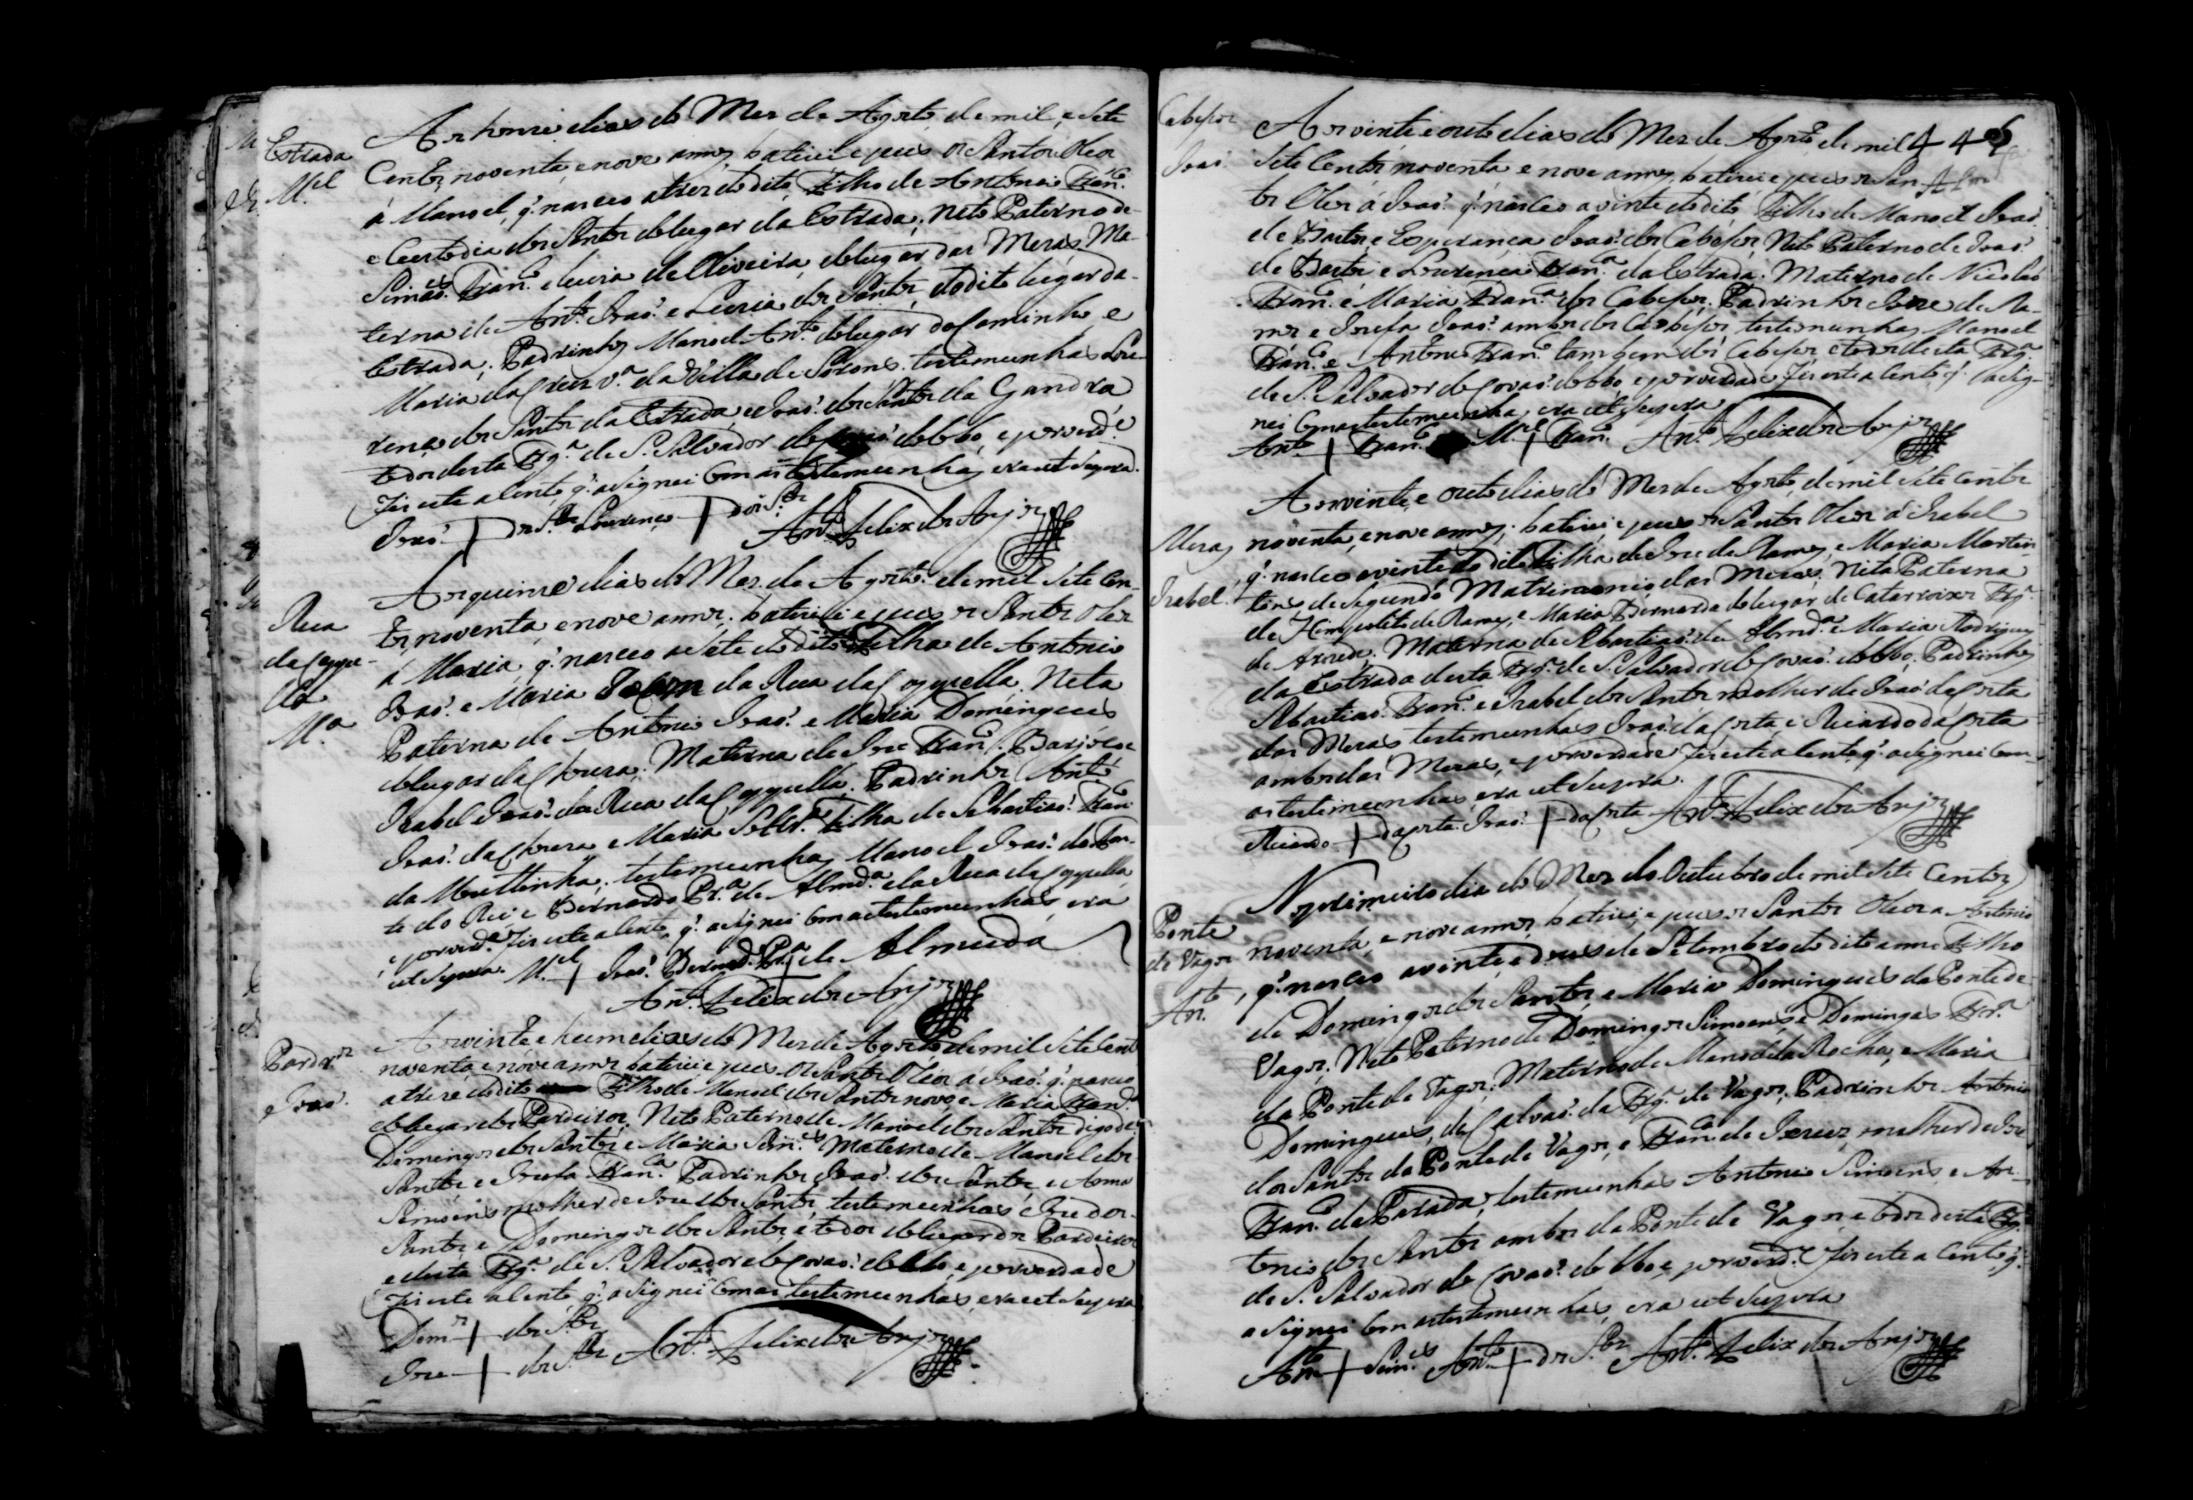 Estrada
M.el
Aos honze dias do Mes de Agosto de mil e sete
Centos noventa, e nove annos, baticei e pus os Santos Oleos
a Manoel, q. nasceo a tres do dito, Filho de Antonio Fran.co
e Custodia dos Santos do lugar da Estrada, Neto Paterno de
Simaõ Fran.co e Luzia de Oliveira, do lugar das Meras, Ma-
terna de Ant.o Joaõ e Luzia dos Santos, do dito lugar da
Estrada, Padrinhos Manoel Ant.o do lugar do Caminho e
Maria da Cruz v.a da Villa de Sozons. testemunhas Lou-
renço dos Santos da Estrada, e Joaõ dos Santos da Gandra
todos desta Frg.a de S. Salvador de Covaõ do lobo, e por verd.e
Fis este aSento q. aSignei Com as testemunhas, era ut Supra.
Joaõ + dos S.tos Lourenço + dos S.tos
Ant.o Felix dos Anjos
Rua
da Coque-
lla
M.a
Aos quinze dias do Mes de Agosto de mil Sete Cen-
tos noventa, e nove annos, baticei e pus os Santos Oleos
á Maria, q. nasceo a Sete do dito Filha de Antonio
Joaõ e Maria da Rua da Coquella, Neta
Paterna de Antonio Joaõ e Maria Domingues
do lugar da Chouza, Materna de Joze Fran.co
Isabel Joaõ da Rua da Coquella. Padrinhos Ant.o
Joaõ da Chouza e Maria Solt.ra Filha de Sebastiaõ Fran.co
da Mouttinha, testemunhas Manoel Joaõ da Fon-
te do Rei e Bernardo Pr.a de Almd.a da Rua da Coquella
e por verd.e Fis este aSento, q. aSignei Com as testemunhas, era
ut Supra. M.el + Joaõ. Bernard.o Pr.a de Almeida
Ant.o Felix dos Anjos
Pardr.os
e Joaõ.
Aos vinte e hum dias do Mes de Agosto de mil Sete Cent.
noventa, e nove annos baticei e pus os Santos Oleos á Joaõ q. nasceo
a treze do dito Filho de Manoel dos Santos novo e Maria Fran.ca
do lugar dos Pardeiros, Neto Paterno de Manoel dos Santos digo de
Domingos dos Santos e Maria Sim.es Materno de Manoel dos
Santos e Jozefa Fran.ca Padrinhos Joaõ dos Santos, e Anna
Simoens molher de Joze dos Santos, testemunhas Joze dos
Santos e Domingos dos Santos, e todos do lugar dos Pardeiros
e desta Frg.a de S. Salvador de Covaõ do lobo, e por verdade
Fis este aSento q. aSignei Com as testemunhas, era ut Supra
Dom.os + dos S.tos
Joze + dos S.tos Ant.o Felix dos Anjos
Cabeços
Joaõ
Aos vinte e outo dias do Mes de Agosto de mil
Sete Centos noventa e nove annos, baticei e pus os San-
tos Oleos á Joaõ q. nasceo a vinte do dito, Filho de Manoel Joaõ
de Bastos e Esperança Joaõ dos Cabeços, Neto Paterno de Joaõ
de Bastos e Lourença Fran.ca da Estrada. Materno de Nicolao
Fran.co e Maria Fran.ca dos Cabeços, Padrinhos Joze de Ra-
mos e Jozefa Joaõ ambos dos Cabeços, testemunhas Manoel
Fran.co e Antonio Fran.co tambem dos Cabeços, e todos desta Frg.a
de S. Salvador de Covaõ do lobo, e por verdade Fis este aSento q. aSig-
nei Com as testemunhas, era ut Supra
Ant.o + Fran.co M.el + Fran.co Ant.o Felix dos Anjos
Meras
Izabel.
Aos vinte, e outo dias do Mes de Agosto, de mil Sete Centos
noventa, e nove annos, baticei e pus os Santos Oleos á Izabel
q. nasceo a vinte do dito Filha de Joze de Ramos, e Maria Martin
tins de Segundo Matrimonio das Meras, Neta Paterna
de Hempolito de Ramos, e Maria Bernarda do lugar de Catarroxos Frg.a
de Arzede. Materna de Sebastiaõ de Almd.a e Maria Rodrigues
da Estrada desta Frg.a de S. Salvador de Covaõ do lobo, Padrinhos
Sebastiaõ Fran.co e Izabel dos Santos molher de Joaõ da Costa
das Meras testemunhas Joaõ da Costa, e Ricardo da Costa
ambos das Meras, e por verdade Fis este aSento, q. aSignei Com
as testemunhas, era ut Supra.
Ricardo + da Costa Joaõ + da Costa Ant.o Felix dos Anjos
Ponte
de Vagos
Ant.o
No primeiro dia do Mes do Outubro de mil Sete Centos
noventa, e nove annos, baticei e pus os Santos Oleos a Antonio
q. nasceo a vinte, e dous de Setembro do dito anno Filho
de Domingos dos Santos, e Maria Domingues da Ponte de
Vagos, Neto Paterno de Domingos Simoens, e Domingas Fr.a
da Ponte de Vagos, Materno de Manoel da Rocha, e Maria
Domingues, de Calvaõ da Frg.a de Vagos, Padrinhos Antonio
dos Santos da Ponte de Vagos, e Fran.ca de Jezus molher de Joze
Fran.co da Parada, testemunhas Antonio Simoens e An-
tonio dos Santos ambos da Ponte de Vagos e todos desta Frg.a
de S. Salvador de Covaõ do lobo, e por verd.e Fis este aSento, q.
aSignei Com as testemunhas, era ut Supra
Ant.o + Sim.es Ant.o + dos S.tos Ant.o Felix dos Anjos